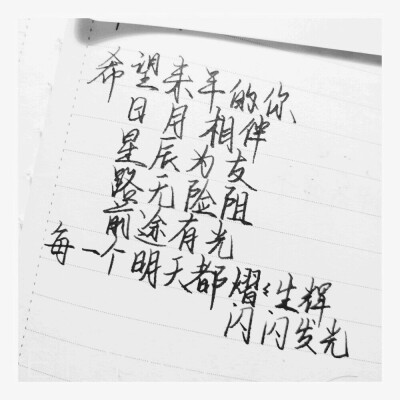 希望来年的你
日月相伴
星辰为友
路无险阻
前途有光
每一个明天都熠々生辉
闪闪发光